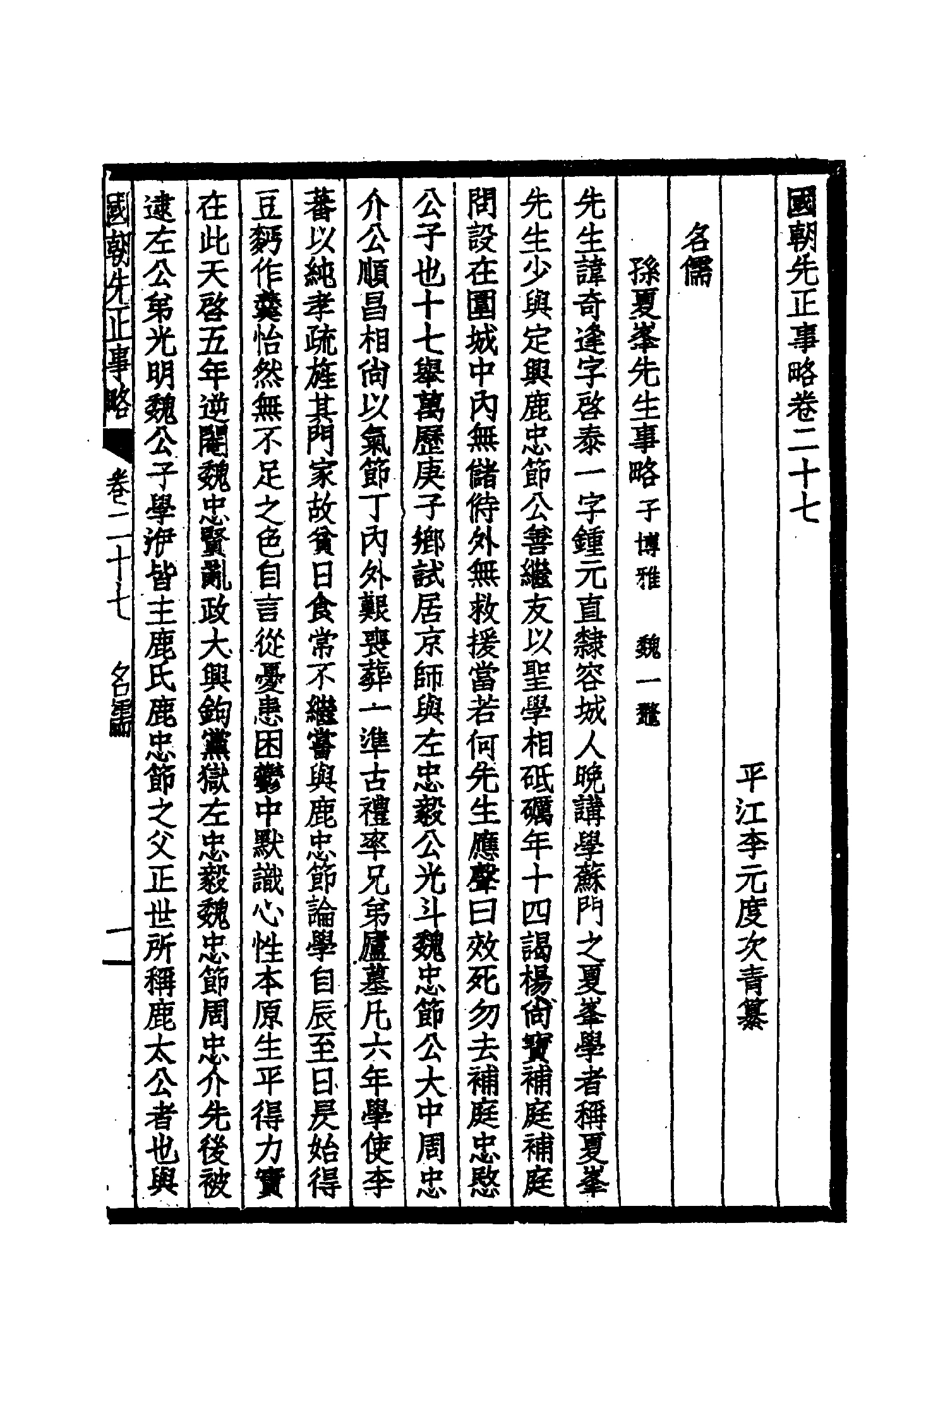 國朝先正事略卷二十七
平江李元度次青纂
名儒
孫夏峯先生事略 子博雅 魏一鼇
先生諱奇逢字啓泰一字鍾元直隸容城人晚講學蘇門之夏峯學者稱夏峯
先生少與定興鹿忠節公善繼友以聖學相砥礪年十四謁楊尙寶補庭補庭
問設在圍城中內無儲偫外無救援當若何先生應聲曰效死勿去補庭忠愍
公子也十七舉萬歷庚子鄉試居京師與左忠毅公光斗魏忠節公大中周忠
介公順昌相尙以氣節丁內外艱喪葬一準古禮率兄弟廬墓凡六年學使李
蕃以純孝疏旌其門家故貧日食常不繼嘗與鹿忠節論學自辰至日昃始得
豆麪作羹怡然無不足之色自言從憂患困鬱中默識心性本原生平得力實
在此天啓五年逆閹魏忠賢亂政大興鉤黨獄左忠毅魏忠節周忠介先後被
逮左公弟光明魏公子學洢皆主鹿氏鹿忠節之父正世所稱鹿太公者也與
國朝先正事略 卷二十七 名儒 一